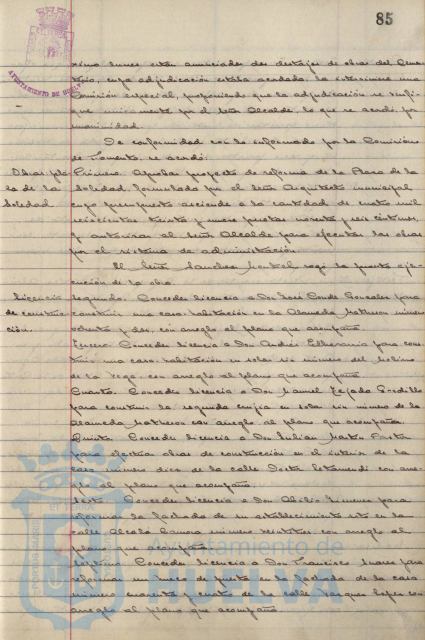 85
AYUNTAMIENTO DE HUELVA
ximo lunes están anunciados dos destajos de obras del Cemen-
terio, cuya adjudicación estaba acordada, la interviniere una
Comisión especial, proponiendo que la adjudicación se verifi-
que únicamente por el señor Alcalde, lo que se acordó por
unanimidad.
De conformidad con lo informado por la Comisión
de Fomento, se acordó:
Obras pla-
za de la
Soledad.
Primero. Aprobar proyecto de reforma de la Plaza de la
Soledad, formulado por el señor Arquitecto municipal
cuyo presupuesto asciende a la cantidad de cuatro mil
seiscientas treinta y nueve pesetas noventa y seis céntimos,
y autorizar al señor Alcalde para ejecutar las obras
por el sistema de administración.
El señor Sánchez rogó la pronta eje-
cución de la obra.
Licencia
de construc-
ción.
Segundo. Conceder licencia a Don José Conde González para
construir una casa-habitación en la Alameda número
ochenta y dos, con arreglo al plano que acompaña.
Tercero. Conceder licencia a Don Andrés para cons-
truir una casa-habitación en solar sin número del Molino
de la Vega, con arreglo al plano que acompaña.
Cuarto. Conceder licencia a Don Manuel Tejada Gordillo
para construir la segunda crujía en solar sin número de la
Alameda con arreglo al plano que acompaña.
Quinto. Conceder licencia a Don Julián Martín
para efectuar obras de construcción en el interior de la
casa número doce de la calle Doctor Letamendi con arre-
glo al plano que acompaña.
Sexto. Conceder licencia a Don Abilio Jimenez para
reformar la fachada de su establecimiento sito en la
calle Alcalá Zamora número veintitres con arreglo al
plano que acompaña.
Séptimo. Conceder licencia a Don Francisco Suarez para
reformar un hueco de puerta en la fachada de la casa
número cuarenta y cuatro de la calle Vazquez Lopez con
arreglo al plano que acompaña.
Ayuntamiento de
HUELVA